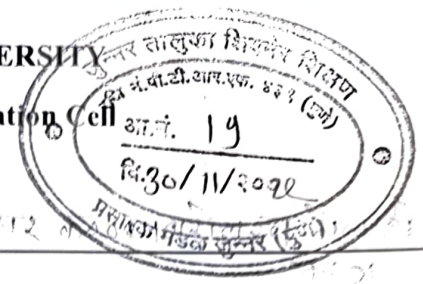 ERSITY
ation Cell
जुन्नर तालुका शिवनेर शिक्षण
ट्रि नं.पी.टी.आर.एफ. ४३९ (पुणे)
आ.नं. 19
दि.30/11/२०२२
प्रसारक मंडळ जुन्नर (पुणे)